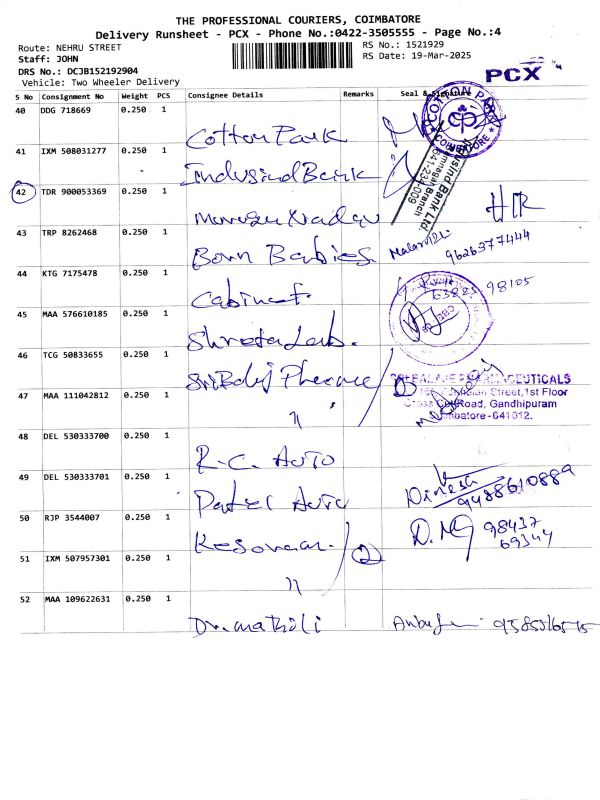 THE PROFESSIONAL COURIERS, COIMBATORE
Delivery Runsheet - PCX - Phone No.:0422-3505555 - Page No.:4
Route: NEHRU STREET
RS No.: 1521929
Staff: JOHN
RS Date: 19-Mar-2025
DRS No.: DCJB152192904
Vehicle: Two Wheeler Delivery
PCX
S No Consignment No Weight PCS Consignee Details Remarks Seal & Signature
40 DDG 718669 0.250 1 Cotton Park
COTTON PARK COIMBATORE
41 IXM 508031277 0.250 1 Indusind Bank
Indusind Bank Ltd.
42 TDR 900053369 0.250 1
43 TRP 8262468 0.250 1 Born Babies
9626377444
44 KTG 7175478 0.250 1 Cabinet
63825 98105
45 MAA 576610185 0.250 1 Shreta Lab.
46 TCG 50833655 0.250 1
47 MAA 111042812 0.250 1 "
2
Street,1st Floor
Road, Gandhipuram
Coimbatore-641012.
48 DEL 530333700 0.250 1 R.C. Auto
49 DEL 530333701 0.250 1 Patel Auto
Dinesh
9488610889
50 RJP 3544007 0.250 1 Kesavan
2
98437
69344
51 IXM 507957301 0.250 1 "
52 MAA 109622631 0.250 1 Dr. mathili